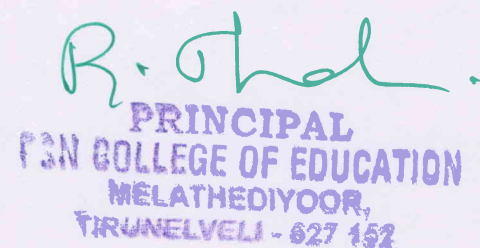 PRINCIPAL
PSN COLLEGE OF EDUCATION
MELATHEDIYOOR,
TIRUNELVELI - 627 152